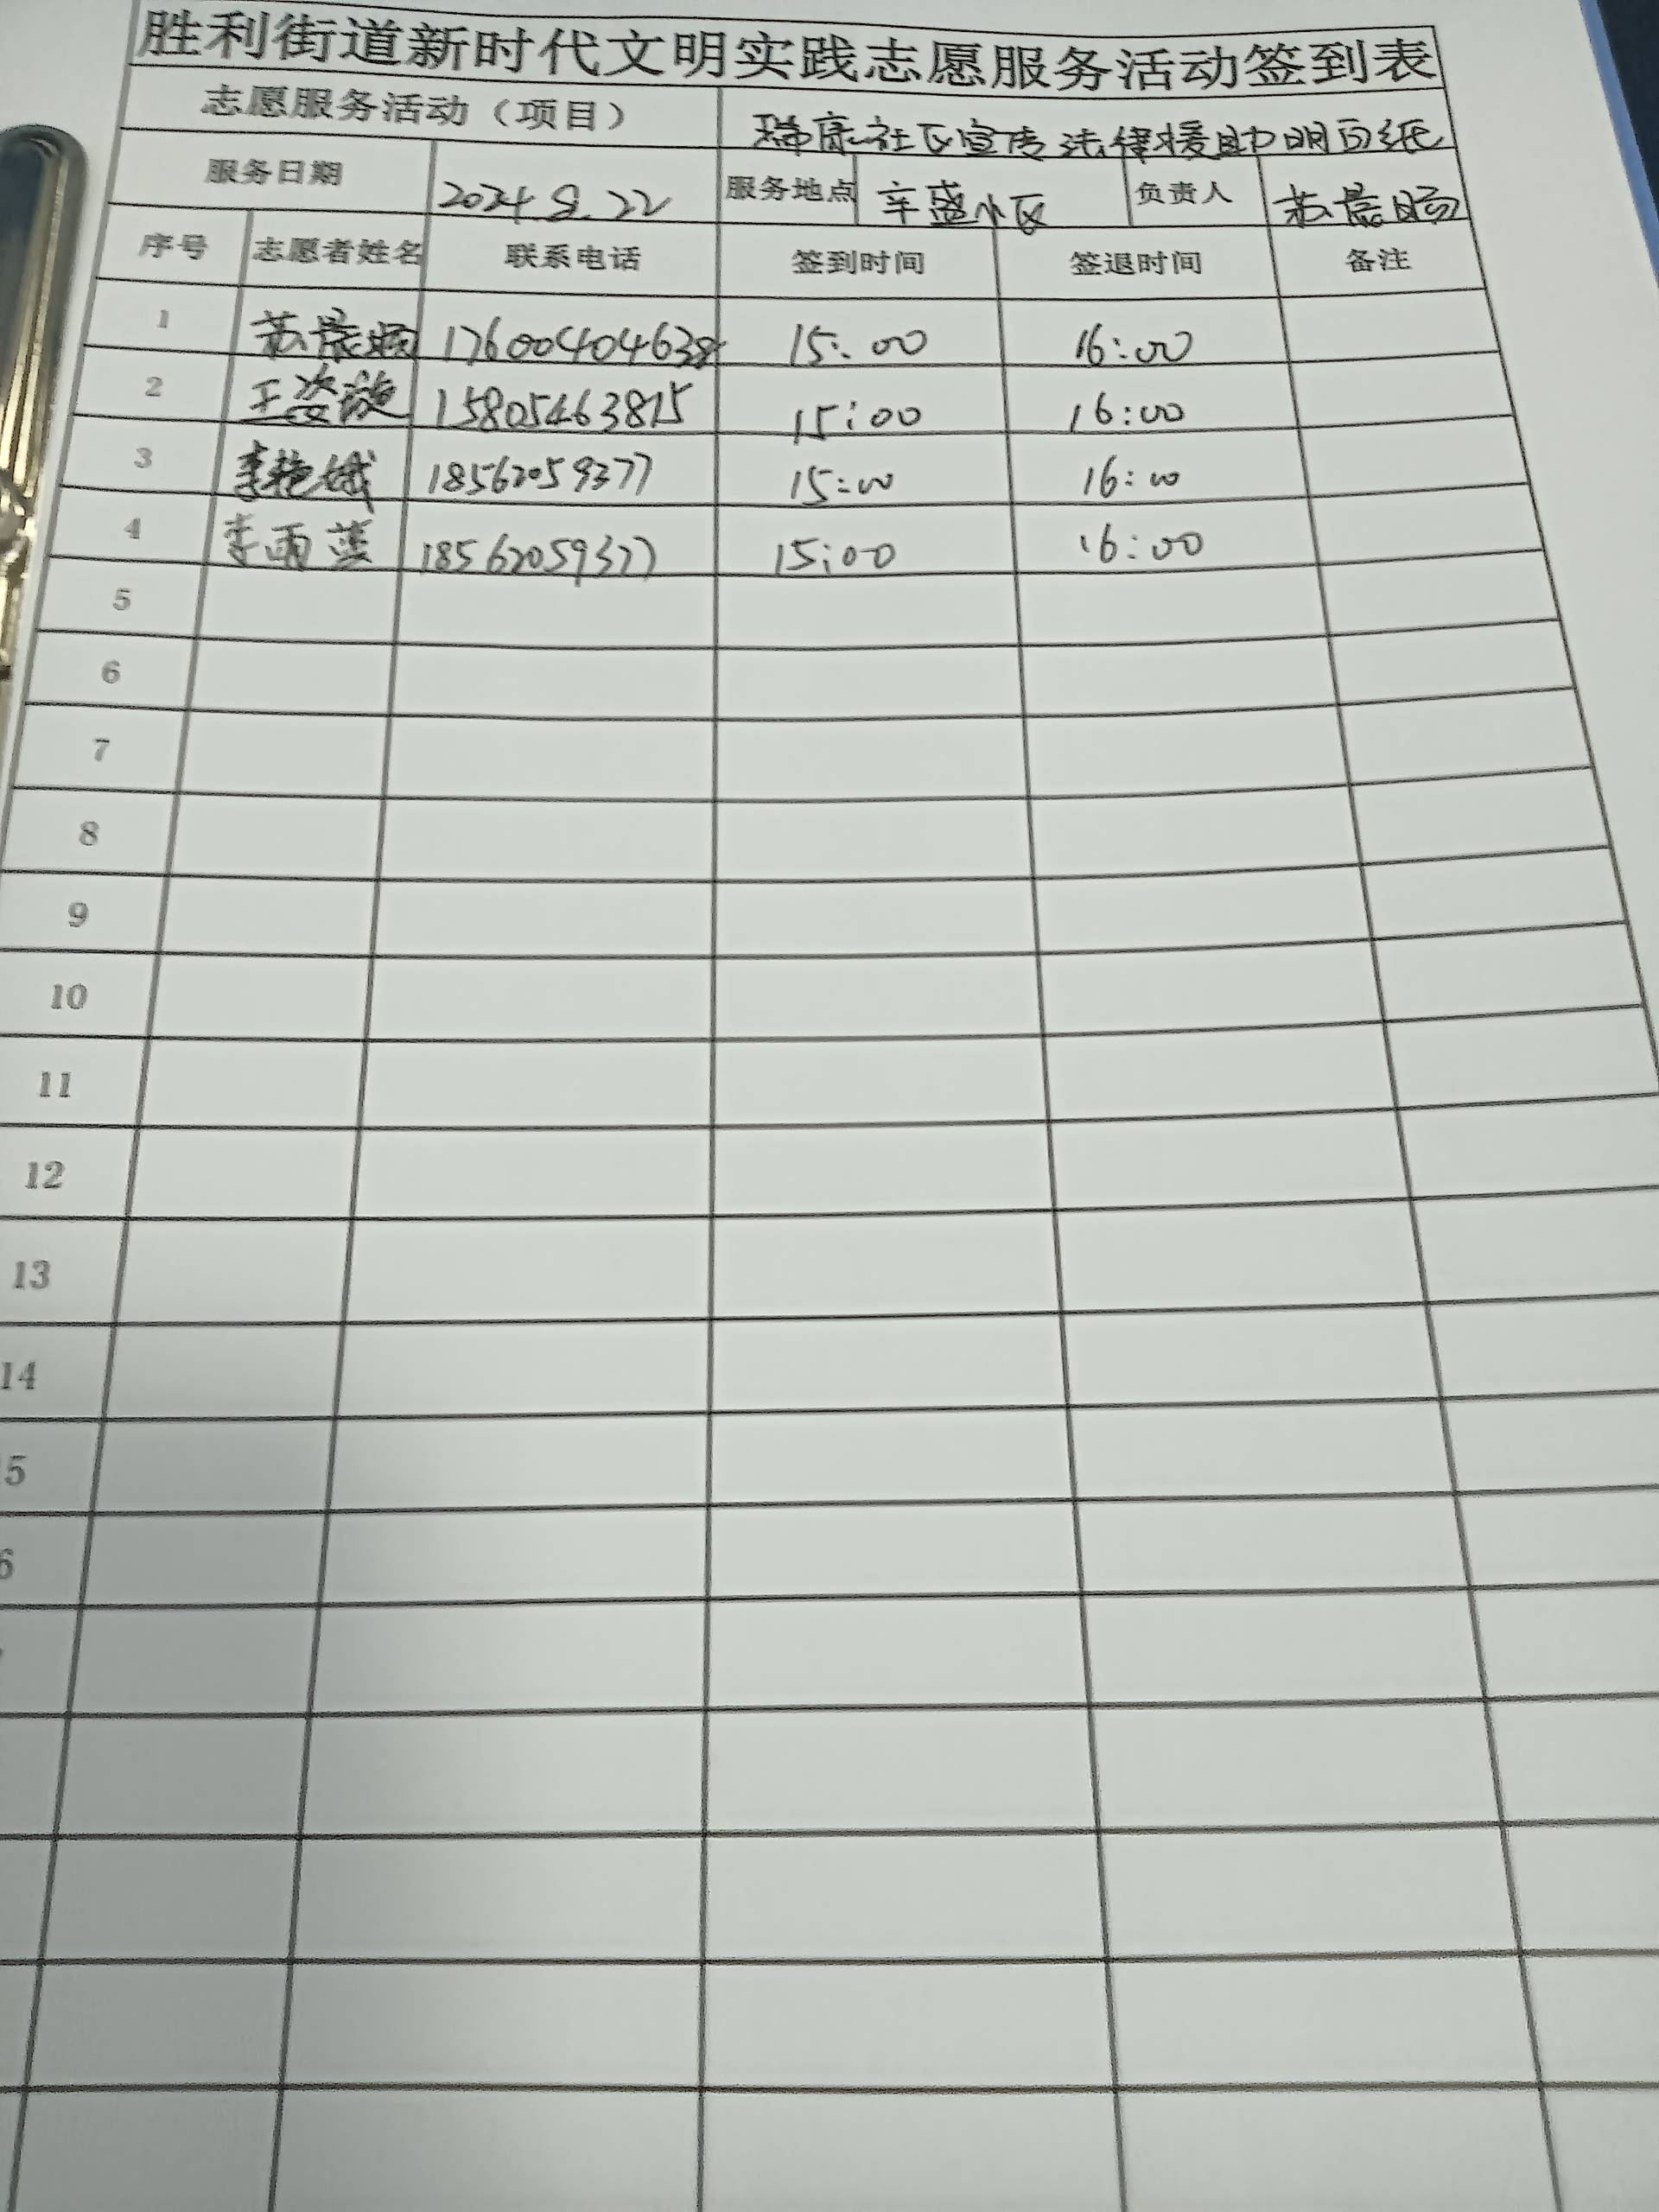 胜利街道新时代文明实践志愿服务活动签到表
志愿服务活动（项目） 瑞康社区宣传法律援助明白纸
服务日期 2024.8.22 服务地点 辛盛小区 负责人 苏晨旸
序号 志愿者姓名 联系电话 签到时间 签退时间 备注
1 苏晨旸 17600404638 15:00 16:00
2 王姿漩 15805463815 15:00 16:00
3 李艳娥 18562059377 15:00 16:00
4 李雨蓝 18562059377 15:00 16:00
5
6
7
8
9
10
11
12
13
14
5
6